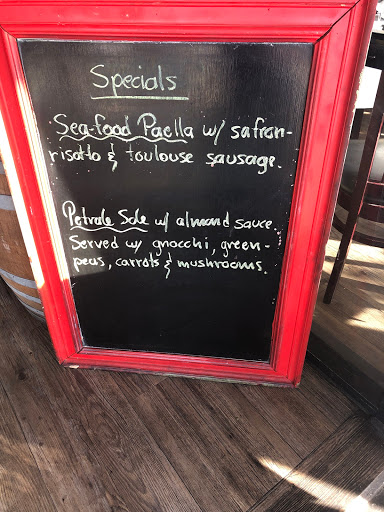 Specials
Sea-food Paella w/ safran-
risotto & toulouse sausage.
Petrale Sole w/ almond sauce.
Served w/ gnocchi, green-
peas, carrots & mushrooms.